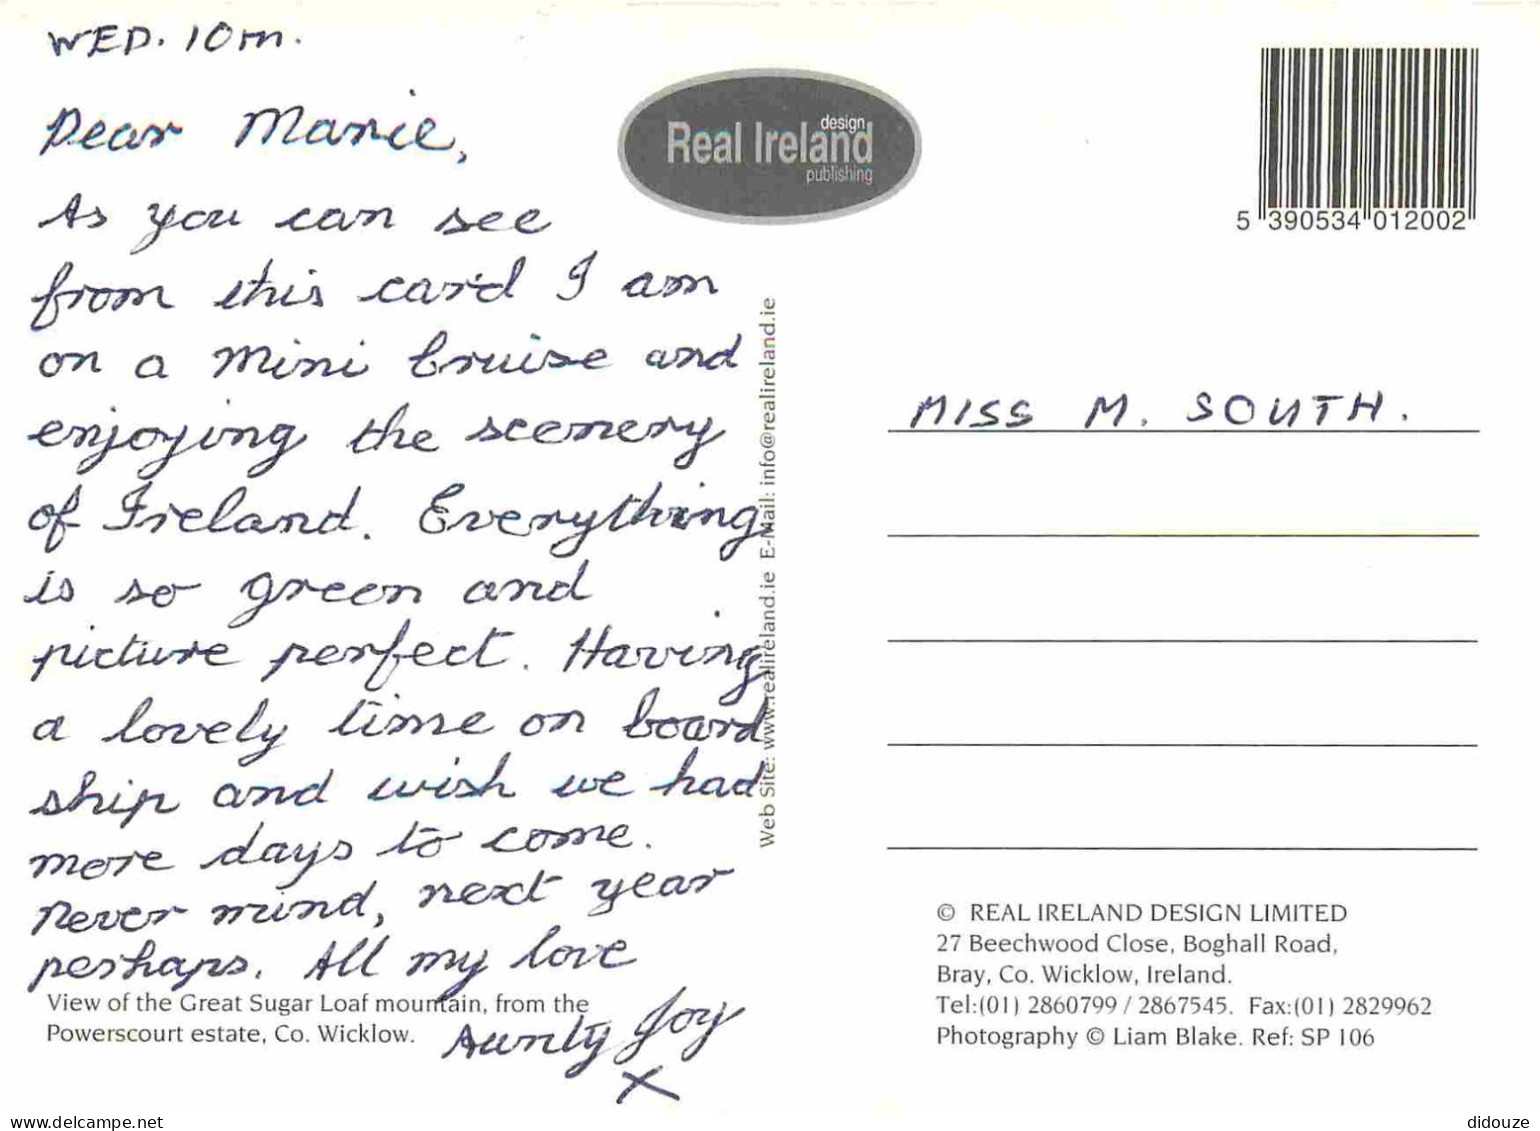 WED. 10m.
Dear Marie,
As you can see
from this card I am
on a mini cruise and
enjoying the scenery
of Ireland. Everything
is so green and
picture perfect. Having
a lovely time on board
ship and wish we had
more days to come.
Never mind, next year
perhaps. All my love
Aunty Joy
X
View of the Great Sugar Loaf mountain, from the
Powerscourt estate, Co. Wicklow.
Real Ireland
design
publishing
Web Site: www.realireland.ie E-Mail: info@realireland.ie
5 390534 012002
MISS M. SOUTH.
© REAL IRELAND DESIGN LIMITED
27 Beechwood Close, Boghall Road,
Bray, Co. Wicklow, Ireland.
Tel:(01) 2860799 / 2867545. Fax:(01) 2829962
Photography © Liam Blake. Ref: SP 106
delcampe.net
didouze